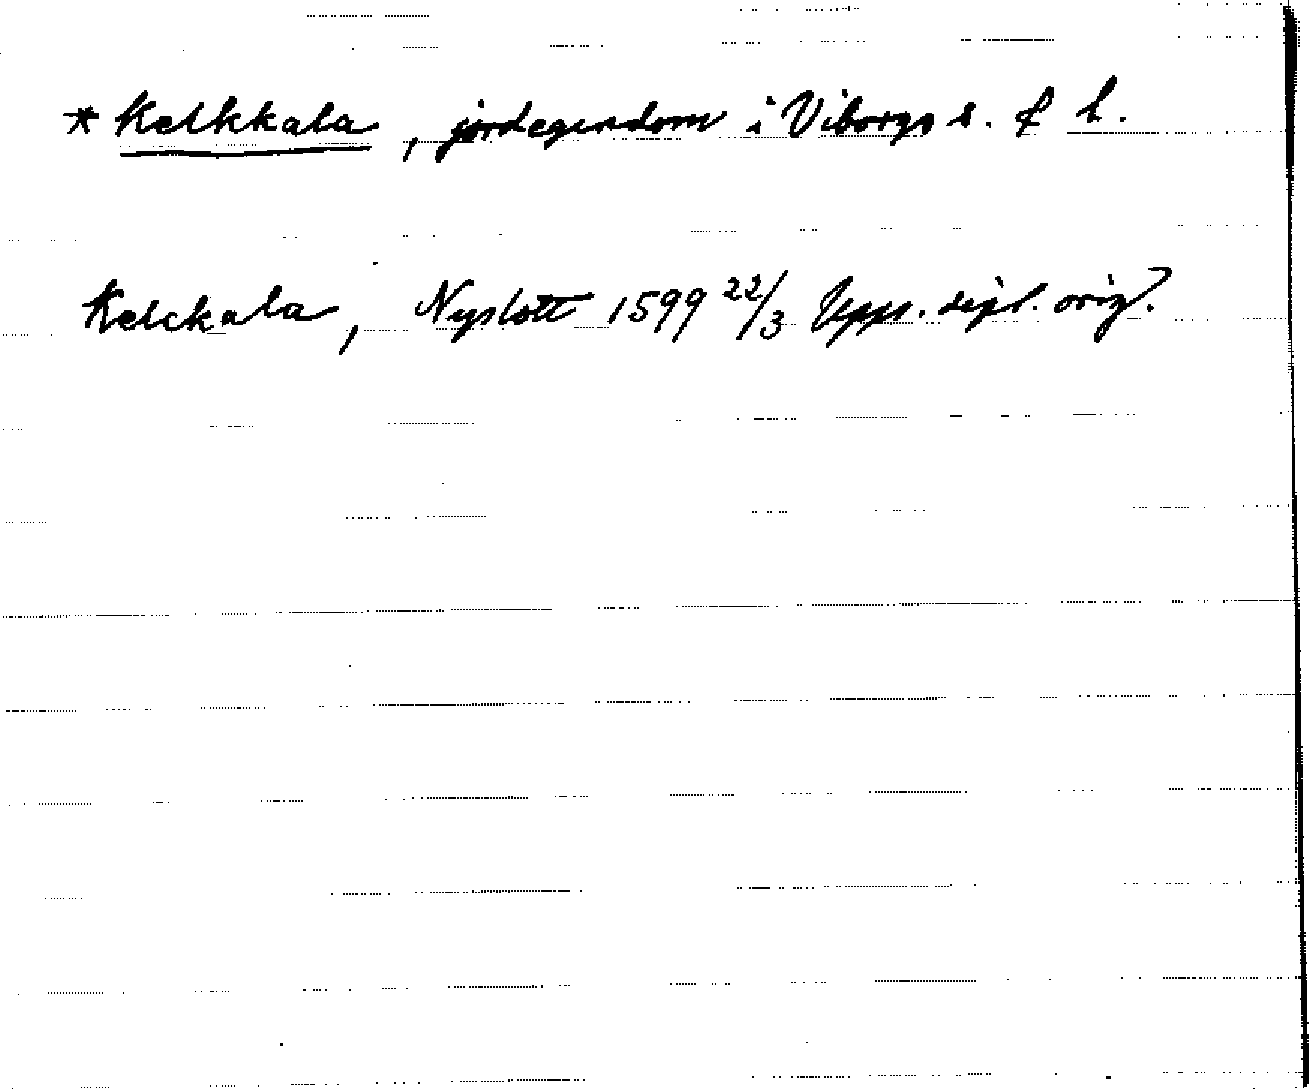 * Kelkkala, jordegendom i Viborgs s. & l.
Kelckala, Nyslott 1599 22/3 Upps. dipl. orig.